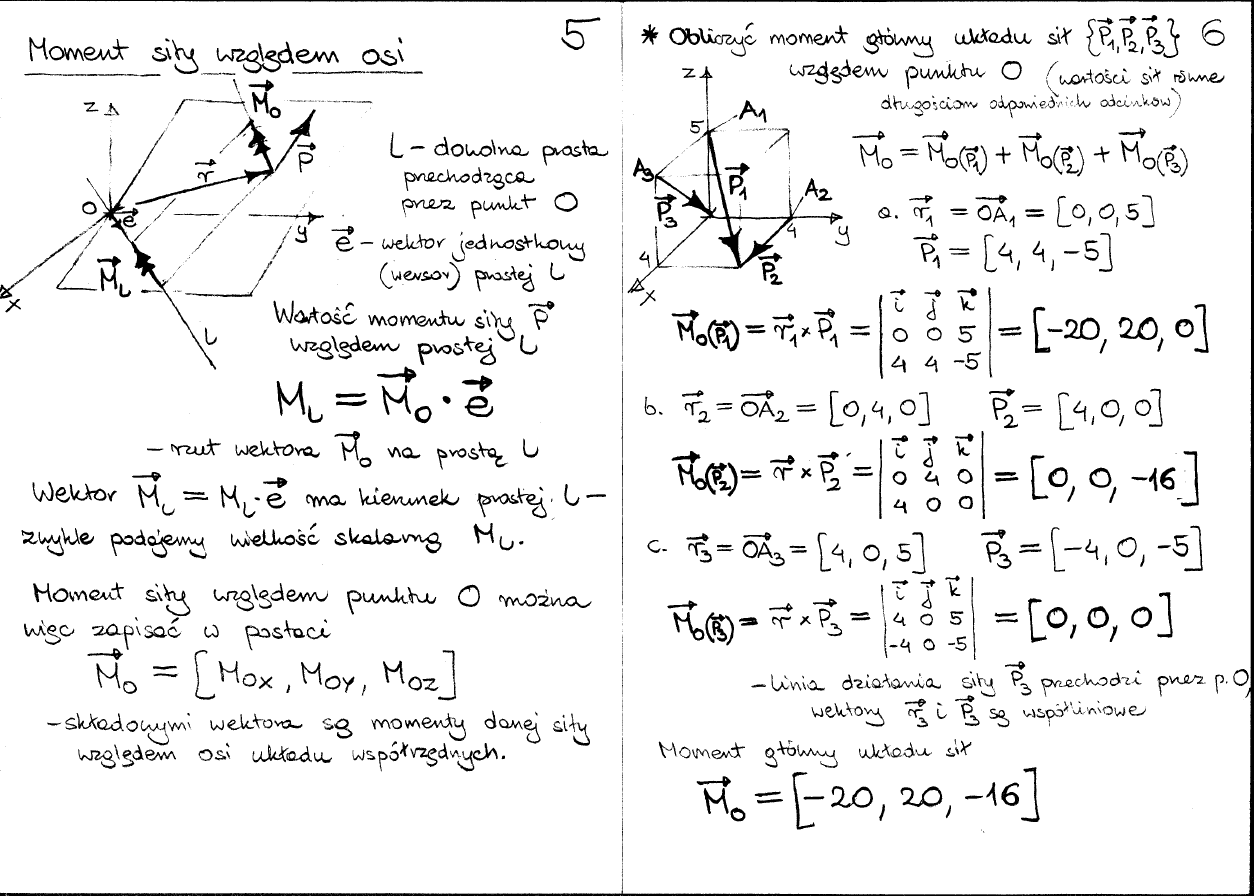 5
Moment siły względem osi
z
M⃗O
P⃗
r⃗
O
e⃗
y
M⃗l
x
l
l – dowolna prosta
przechodząca
przez punkt O
e⃗ – wektor jednostkowy
(wersor) prostej l
Wartość momentu siły P⃗
względem prostej l
Ml = M⃗O · e⃗
– rzut wektora M⃗O na prostą l
Wektor M⃗l = Ml · e⃗ ma kierunek prostej l –
zwykle podajemy wielkość skalarną Ml.
Moment siły względem punktu O można
więc zapisać w postaci
M⃗O = [MOX, MOY, MOZ]
– składowymi wektora są momenty danej siły
względem osi układu współrzędnych.
6
* Obliczyć moment główny układu sił {P⃗1, P⃗2, P⃗3}
względem punktu O (wartości sił równe
długościom odpowiednich odcinków)
z
A1
5
A3
P⃗1
A2
P⃗3
4
y
4
P⃗2
x
M⃗O = M⃗O(P⃗1) + M⃗O(P⃗2) + M⃗O(P⃗3)
a. r⃗1 = OA⃗1 = [0, 0, 5]
P⃗1 = [4, 4, -5]
M⃗O(P⃗1) = r⃗1 × P⃗1 = | i⃗ j⃗ k⃗ |
| 0 0 5 | = [-20, 20, 0]
| 4 4 -5 |
b. r⃗2 = OA⃗2 = [0, 4, 0] P⃗2 = [4, 0, 0]
M⃗O(P⃗2) = r⃗ × P⃗2 = | i⃗ j⃗ k⃗ |
| 0 4 0 | = [0, 0, -16]
| 4 0 0 |
c. r⃗3 = OA⃗3 = [4, 0, 5] P⃗3 = [-4, 0, -5]
M⃗O(P⃗3) = r⃗ × P⃗3 = | i⃗ j⃗ k⃗ |
| 4 0 5 | = [0, 0, 0]
| -4 0 -5 |
– linia działania siły P⃗3 przechodzi przez p. O,
wektory r⃗3 i P⃗3 są współliniowe
Moment główny układu sił
M⃗O = [-20, 20, -16]